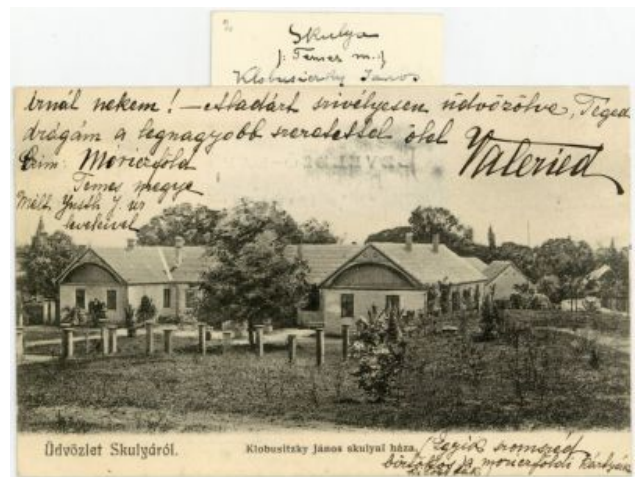 Skulya
(: Temes m. :)
Klobusiczky János
írnál nekem! – Aladárt szivélyesen üdvözölve, Téged
drágám a legnagyobb szeretettel ölel
Valeried
Czim: Móriczföld
Temes megye
Mélt. Justh J. úr
leveleivel
Üdvözlet Skulyáról.
Klobusitzky János skulyai háza.
szomszéd
birtokos, a moriczföldi